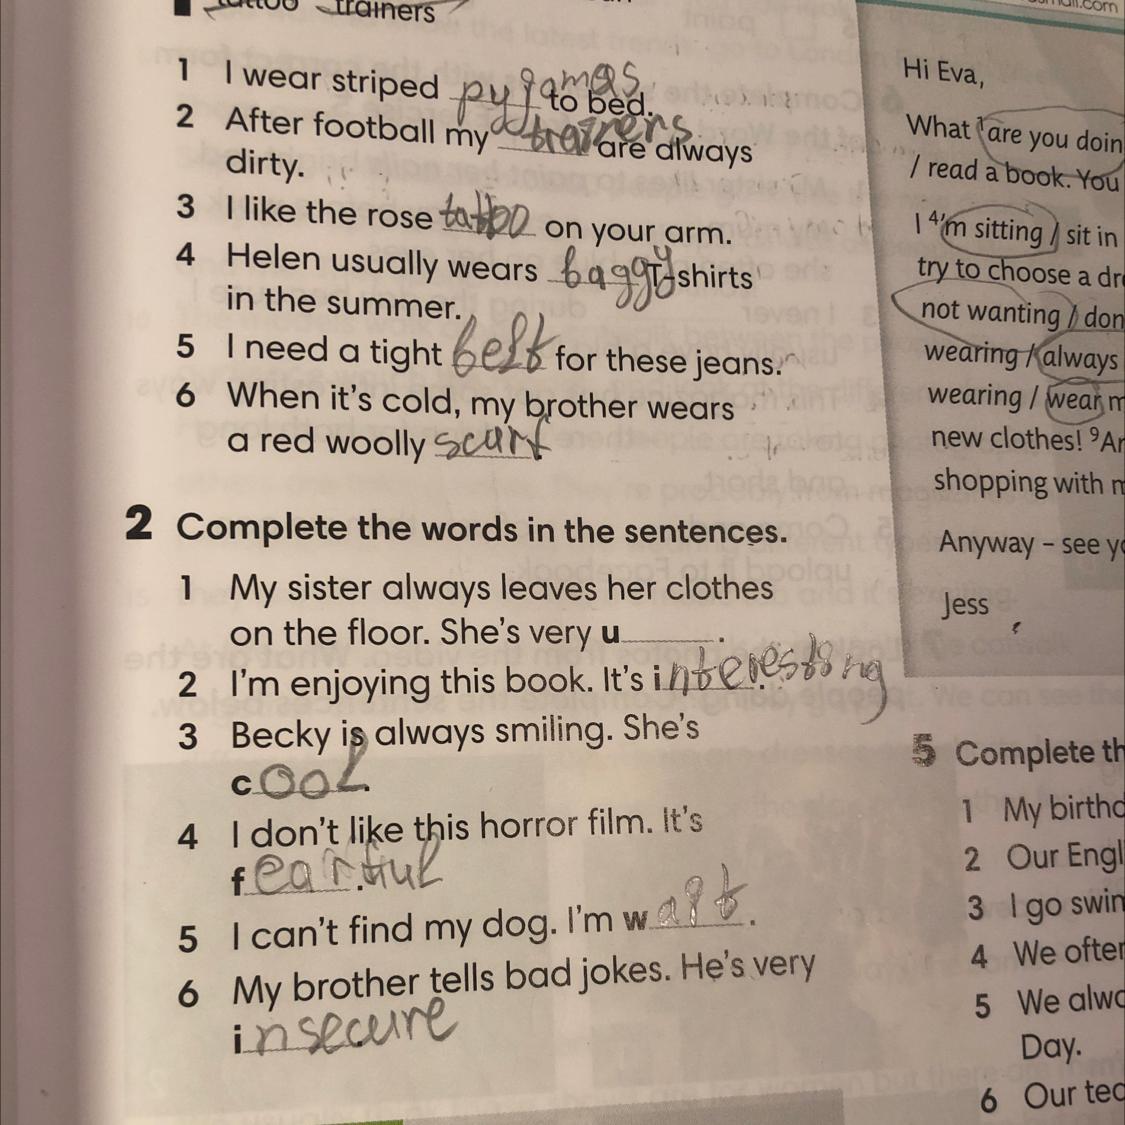 trainers
1 I wear striped pyjamas to bed.
2 After football my trainers are always
dirty.
3 I like the rose tattoo on your arm.
4 Helen usually wears baggy T-shirts
in the summer.
5 I need a tight belt for these jeans.
6 When it's cold, my brother wears
a red woolly scarf.
2 Complete the words in the sentences.
1 My sister always leaves her clothes
on the floor. She's very u______.
2 I'm enjoying this book. It's interesting.
3 Becky is always smiling. She's
cool.
4 I don't like this horror film. It's
fearful.
5 I can't find my dog. I'm wait.
6 My brother tells bad jokes. He's very
insecure.
Hi Eva,
What 1are you doin
/ read a book. You
I 4'm sitting / sit in
try to choose a dr
not wanting / don
wearing / always
wearing / wear m
new clothes! 9Ar
shopping with m
Anyway – see yo
Jess
5 Complete th
1 My birthd
2 Our Engl
3 I go swim
4 We often
5 We alwa
Day.
6 Our tea